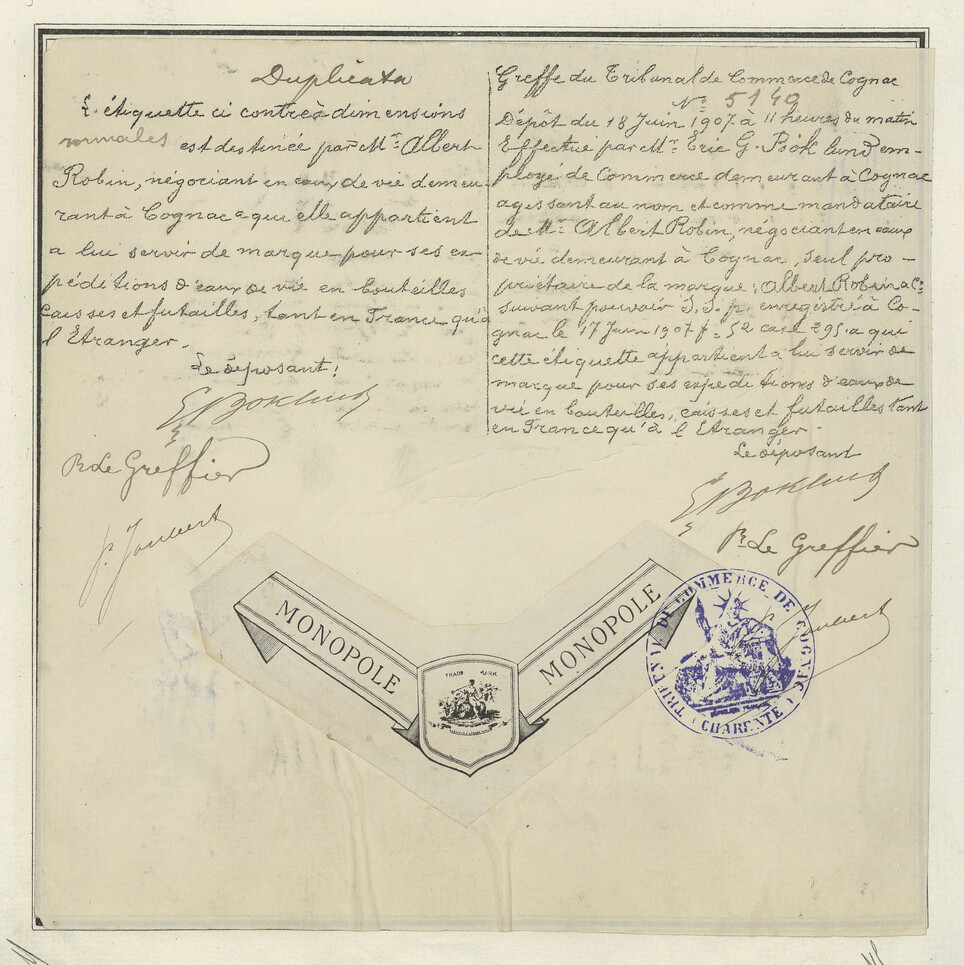 Duplicata
L'étiquette ci contre à dimensions
normales est destinée par Mr. Albert
Robin, négociant en eaux de vie demeu-
rant à Cognac a qui elle appartient
a lui servir de marque pour ses ex-
péditions d'eaux de vie en bouteilles
caisses et futailles, tant en France qu'à
l'Etranger.
Le déposant:
EGBöklund
Pr. Le Greffier
P. Joubert
Greffe du Tribunal de Commerce de Cognac
No. 5140
Dépôt du 18 Juin 1907 à 11 heures du matin
Effectué par Mr. Eric G. Böklund em-
ployé de Commerce demeurant à Cognac
agissant au nom et comme mandataire
de Mr. Albert Robin, négociant en eaux
de vie demeurant à Cognac, seul pro-
priétaire de la marque: Albert Robin & Co
suivant pouvoir S.S.p. enregistré à Co-
gnac le 17 Juin 1907 fo 52 case 295 a qui
cette étiquette appartient a lui servir de
marque pour ses expéditions d'eaux de
vie en bouteilles, caisses et futailles tant
en France qu'à l'Etranger.
Le déposant
EGBöklund
Pr. Le Greffier
P. Joubert
MONOPOLE
MONOPOLE
TRADE MARK
TRIBUNAL DE COMMERCE DE COGNAC
(CHARENTE)